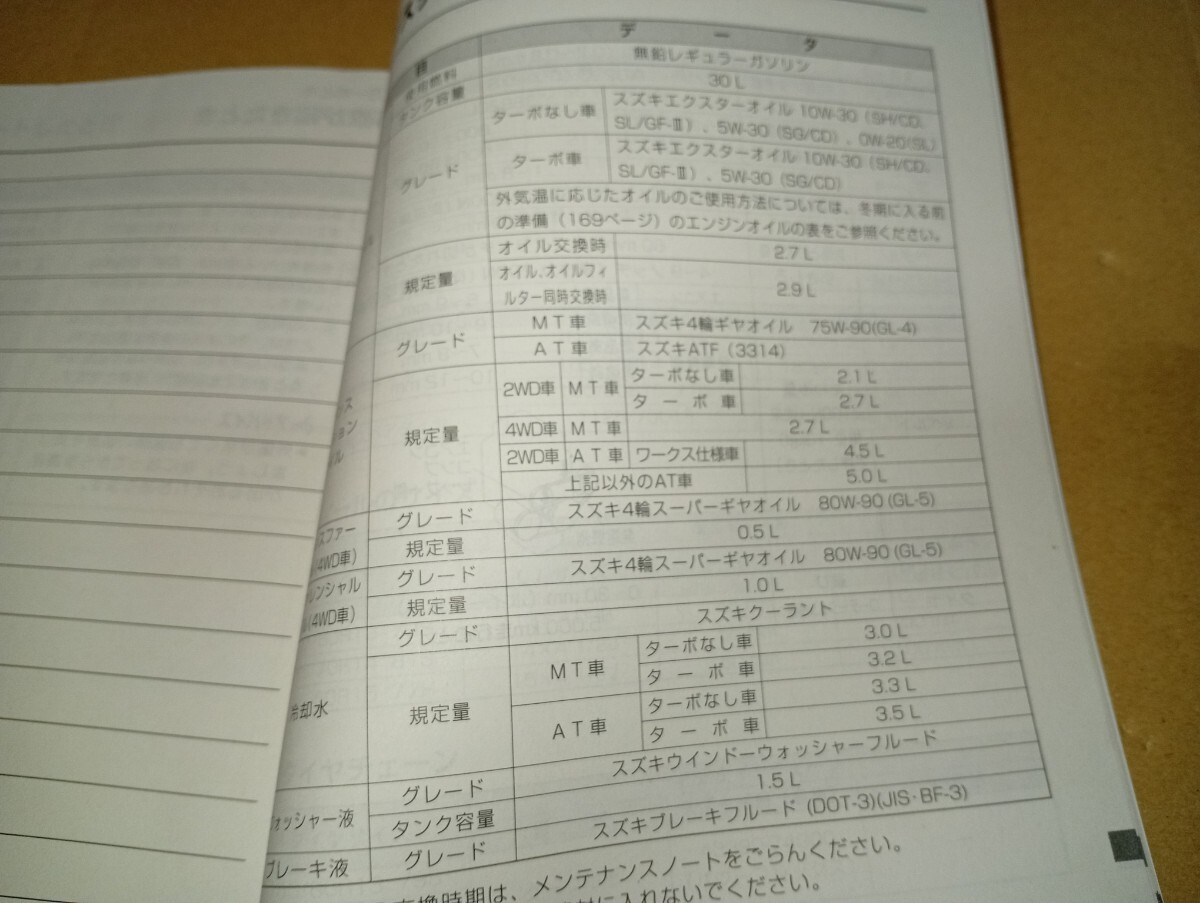 データ
使用燃料 無鉛レギュラーガソリン
タンク容量 30 L
グレード ターボなし車 スズキエクスターオイル 10W-30 (SH/CD、
SL/GF-Ⅲ)、5W-30 (SG/CD)、0W-20(SL)
ターボ車 スズキエクスターオイル 10W-30 (SH/CD、
SL/GF-Ⅲ)、5W-30 (SG/CD)
外気温に応じたオイルのご使用方法については、冬期に入る前
の準備(169ページ)のエンジンオイルの表をご参照ください。
規定量 オイル交換時 2.7 L
オイル、オイルフィ
ルター同時交換時 2.9 L
グレード MT車 スズキ4輪ギヤオイル 75W-90(GL-4)
AT車 スズキATF (3314)
規定量 2WD車 MT車 ターボなし車 2.1 L
ターボ車 2.7 L
4WD車 MT車 2.7 L
2WD車 AT車 ワークス仕様車 4.5 L
上記以外のAT車 5.0 L
スファー
4WD車) グレード スズキ4輪スーパーギヤオイル 80W-90 (GL-5)
規定量 0.5 L
レンシャル
(4WD車) グレード スズキ4輪スーパーギヤオイル 80W-90 (GL-5)
規定量 1.0 L
冷却水 グレード スズキクーラント
規定量 MT車 ターボなし車 3.0 L
ターボ車 3.2 L
AT車 ターボなし車 3.3 L
ターボ車 3.5 L
ォッシャー液 グレード スズキウインドーウォッシャーフルード
タンク容量 1.5 L
ブレーキ液 グレード スズキブレーキフルード (DOT-3)(JIS・BF-3)
交換時期は、メンテナンスノートをごらんください。
に入れないでください。